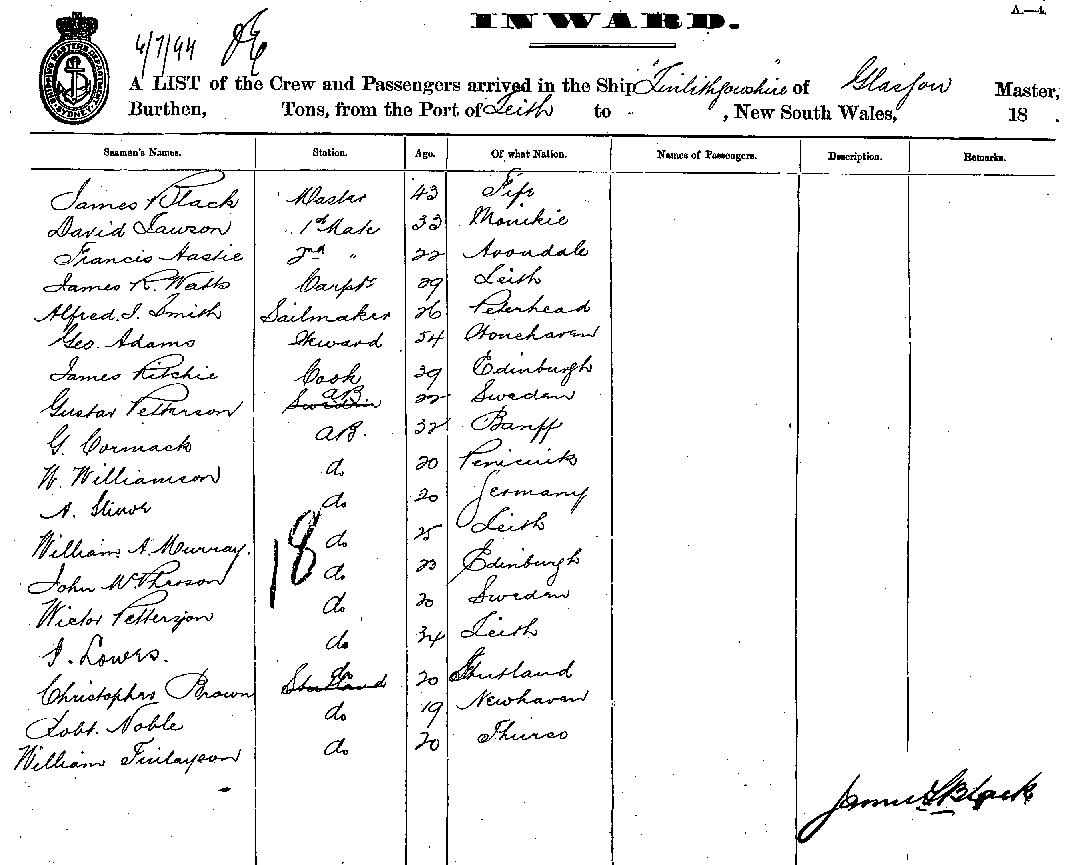 INWARD.
A.—4.
4/7/94
A LIST of the Crew and Passengers arrived in the Ship "Linlithgowshire" of Glasgow Master,
Burthen, Tons, from the Port of Leith to , New South Wales, 18 .
Seamen's Names. Station. Age. Of what Nation. Names of Passengers. Description. Remarks.
James Black Master 43 Fife
David Lawson 1st Mate 33 Monikie
Francis Hastie 2nd " 22 Avondale
James R. Watts Carptr 29 Leith
Alfred. J. Smith Sailmaker 26 Peterhead
Geo. Adams Steward 54 Stonehaven
James Ritchie Cook 39 Edinburgh
Gustaf Petterson Sweden AB 22 Sweden
G. Cormack AB. 32 Banff
W. Williamson do 20 Penicuik
A. do 20 Germany
William A. Murray. do 25 Leith
John McPherson do 23 Edinburgh
Victor Petterson do 20 Sweden
J. Lowrs. do 34 Leith
Christopher Brown Shetland do 20 Shetland
Robt. Noble do 19 Newhaven
William Finlayson do 20 Thurso
18
James Black